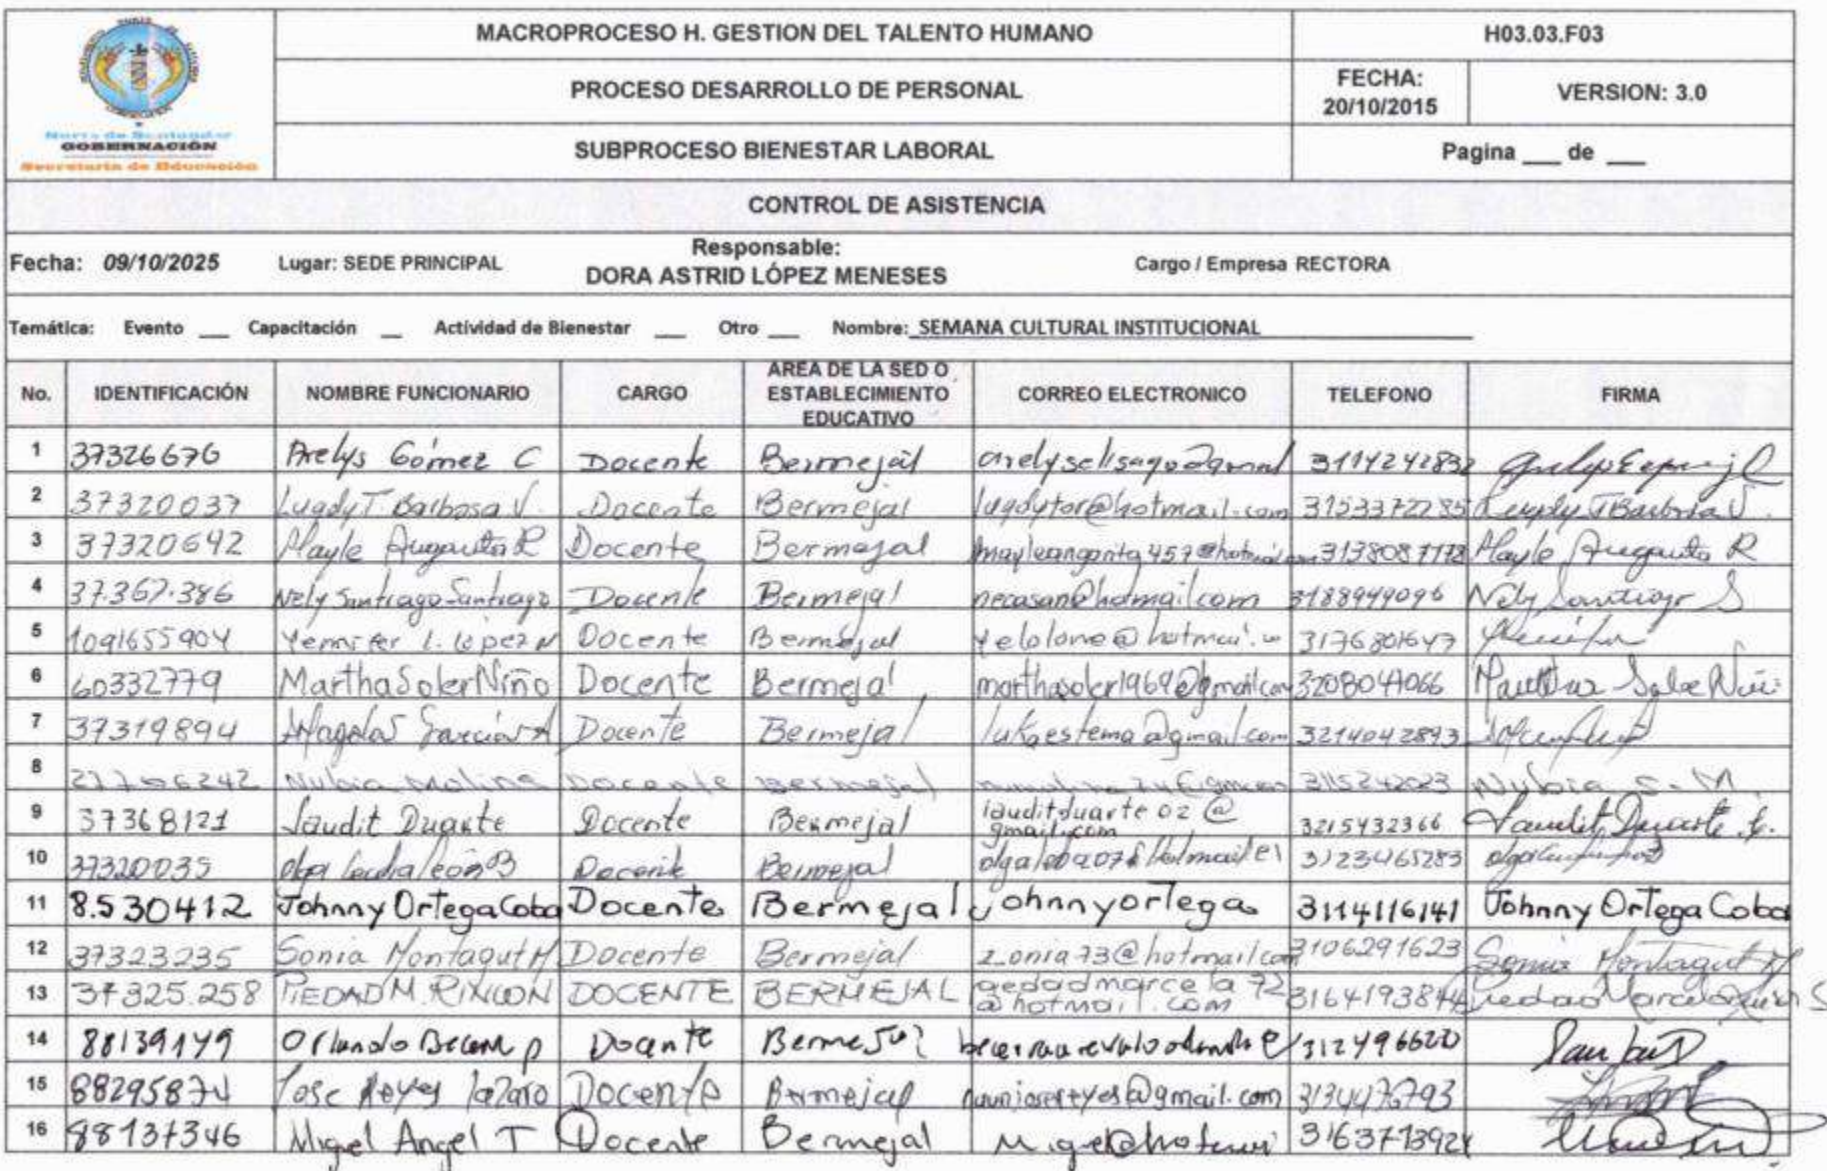 MACROPROCESO H. GESTION DEL TALENTO HUMANO
H03.03.F03
PROCESO DESARROLLO DE PERSONAL
FECHA:
20/10/2015
VERSION: 3.0
Norte de Santander
GOBERNACIÓN
Secretaría de Educación
SUBPROCESO BIENESTAR LABORAL
Pagina ___ de ___
CONTROL DE ASISTENCIA
Fecha: 09/10/2025 Lugar: SEDE PRINCIPAL Responsable: DORA ASTRID LÓPEZ MENESES Cargo / Empresa RECTORA
Temática: Evento ___ Capacitación __ Actividad de Bienestar ___ Otro ___ Nombre: SEMANA CULTURAL INSTITUCIONAL
No. IDENTIFICACIÓN NOMBRE FUNCIONARIO CARGO AREA DE LA SED O ESTABLECIMIENTO EDUCATIVO CORREO ELECTRONICO TELEFONO FIRMA
1 37326676 Arelys Gómez C Docente Bermejal 3114242832
2 37320037 Lugdy T Barbosa V. Docente Bermejal lugdytor@hotmail.com 3153372285 Lugdy T Barbosa V.
3 37320642 Mayle Angarita R Docente Bermejal 3138087172 Mayle Angarita R
4 37.367.386 Nely Santiago Santiago Docente Bermejal necasan@hotmail.com 3188949096 Nely Santiago S
5 1091655904 Yennifer L. López N Docente Bermejal 3176801647
6 60332779 Martha Soler Niño Docente Bermejal marthasoler1969@gmail.com 3208047066 Martha Soler Niño
7 37319894 García A Docente Bermejal lukaestema@gmail.com 3214042893
8 Nubia Molina Docente Bermejal 3115242023 Nubia S. M.
9 37368121 Laudit Duarte Docente Bermejal lauditduarte02@
gmail.com 3215432366 Laudit Duarte
10 37320035 Olga León B Docente Bermejal 3123465283
11 8.530412 Johnny Ortega Coba Docente Bermejal johnnyortega 3114116141 Johnny Ortega Coba
12 37323235 Sonia Montagut M Docente Bermejal z_onia73@hotmail.com 3106291623 Sonia Montagut M
13 37325.258 PIEDAD M. RINCON DOCENTE BERMEJAL
@hotmail.com Piedad Marcela
14 88139149 Orlando Docente 312496620
15 88295874 Jose Reyes Lazaro Docente Bermejal @gmail.com
16 88137346 Migel Angel T Docente Bermejal